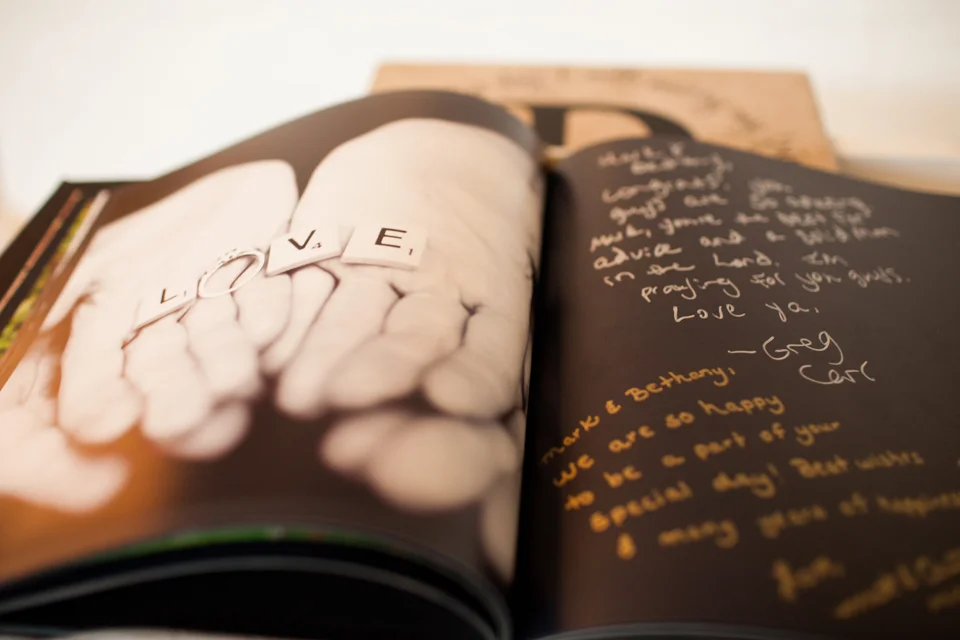 L V E
Mark &
Bethany,
Congrats! You
guys are so amazing
Mark, you're the best for
advice and a
in our Lord. I'm
praying for you guys.
Love ya,
- Greg
Mark & Bethany,
we are so happy
to be a part of your
special day! Best wishes
& many years of happiness